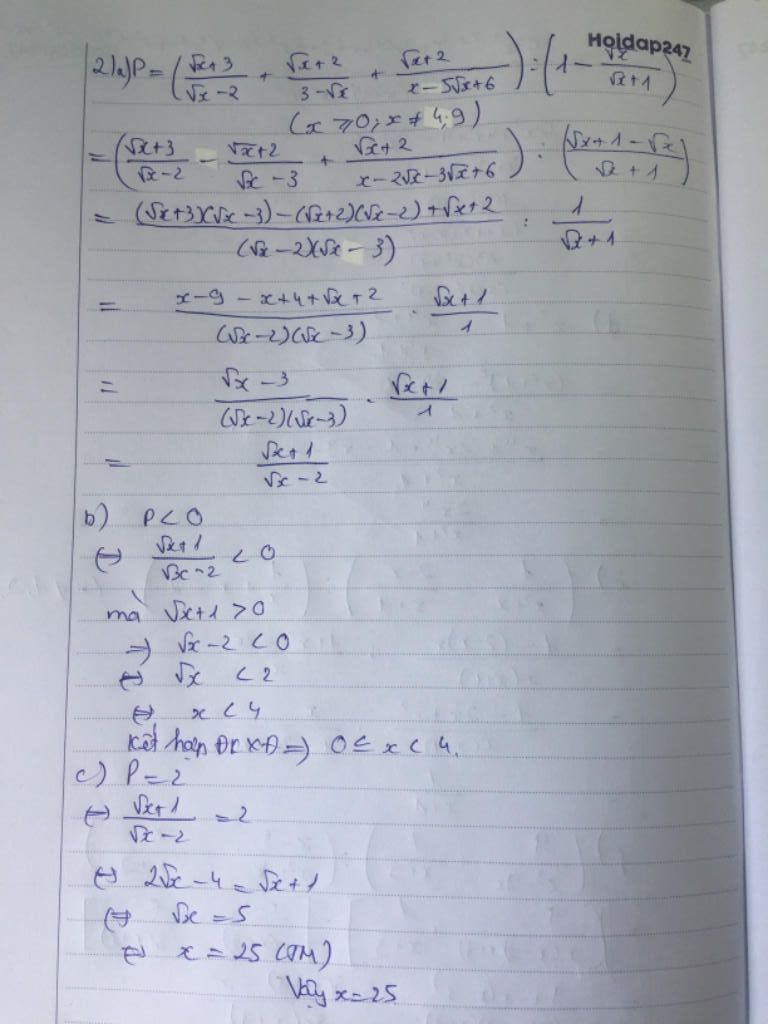 Hoidap247
2)a) P = ( (√x+3)/(√x-2) + (√x+2)/(3-√x) + (√x+2)/(x-5√x+6) ) : ( 1 - √x/(√x+1) )
(x ⩾ 0; x ≠ 4; 9)
= ( (√x+3)/(√x-2) - (√x+2)/(√x-3) + (√x+2)/(x-2√x-3√x+6) ) : ( (√x+1-√x)/(√x+1) )
= ((√x+3)(√x-3)-(√x+2)(√x-2)+√x+2)/((√x-2)(√x-3)) : 1/(√x+1)
= (x-9-x+4+√x+2)/((√x-2)(√x-3)) . (√x+1)/1
= (√x-3)/((√x-2)(√x-3)) . (√x+1)/1
= (√x+1)/(√x-2)
b) P < 0
⇔ (√x+1)/(√x-2) < 0
mà √x+1 > 0
⇒ √x-2 < 0
⇔ √x < 2
⇔ x < 4
Kết hợp ĐKXĐ ⇒ 0 ≤ x < 4.
c) P = 2
⇔ (√x+1)/(√x-2) = 2
⇔ 2√x-4 = √x+1
⇔ √x = 5
⇔ x = 25 (TM)
Vậy x = 25